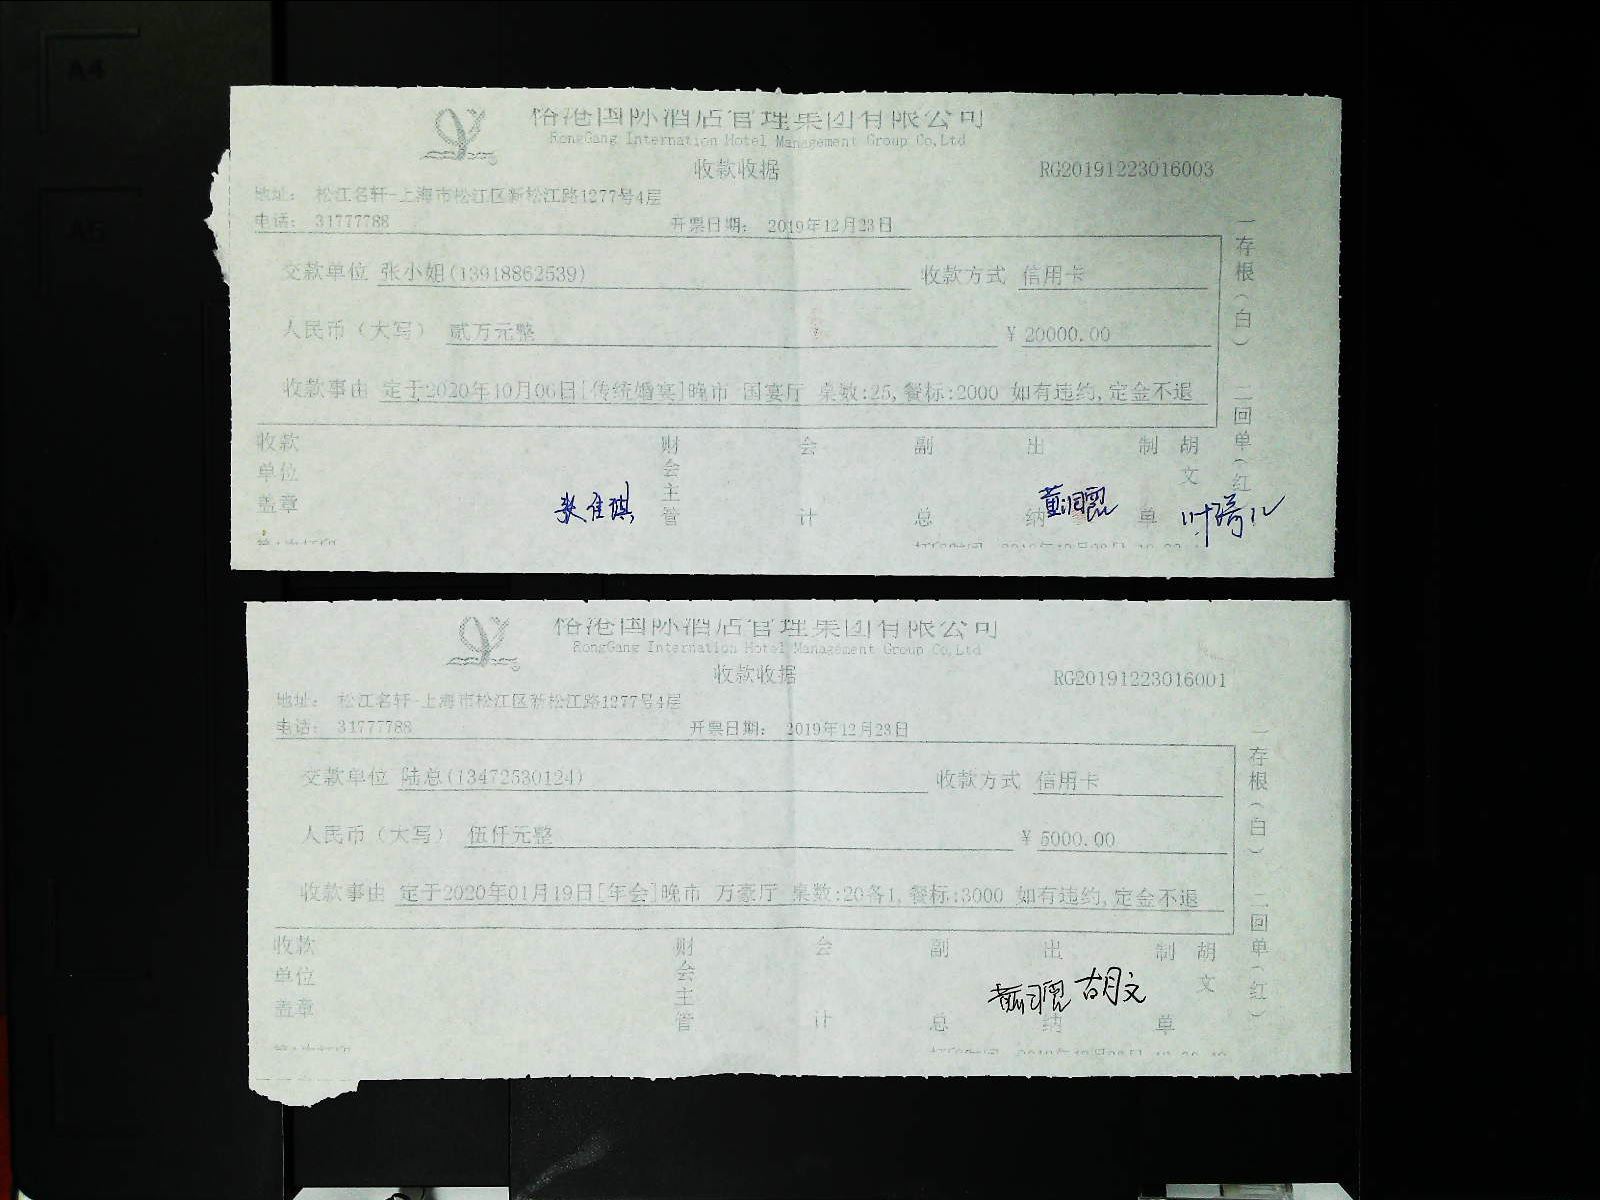 A4
A5
国际酒店管理集团有限公司
RongGang Internation Hotel Management Group Co,Ltd
收款收据
RG20191223016003
地址： 松江名轩-上海市松江区新松江路1277号4层
电话： 31777788 开票日期： 2019年12月23日
交款单位 张小姐(13918862539) 收款方式 信用卡
人民币（大写） 贰万元整 ¥ 20000.00
收款事由 定于2020年10月06日[传统婚宴]晚市 国宴厅 桌数:25,餐标:2000 如有违约,定金不退
一存根（白） 二回单（红
收款单位盖章 财会主管 会计 副总 出纳 制单 胡文
国际酒店管理集团有限公司
RongGang Internation Hotel Management Group Co,Ltd
收款收据
RG20191223016001
地址： 松江名轩-上海市松江区新松江路1277号4层
电话： 31777788 开票日期： 2019年12月23日
交款单位 陆总(13472530124) 收款方式 信用卡
人民币（大写） 伍仟元整 ¥ 5000.00
收款事由 定于2020年01月19日[年会]晚市 万豪厅 桌数:20备1,餐标:3000 如有违约,定金不退
一存根（白） 二回单（红）
收款单位盖章 财会主管 会计 副总 出纳 制单 胡文
胡文